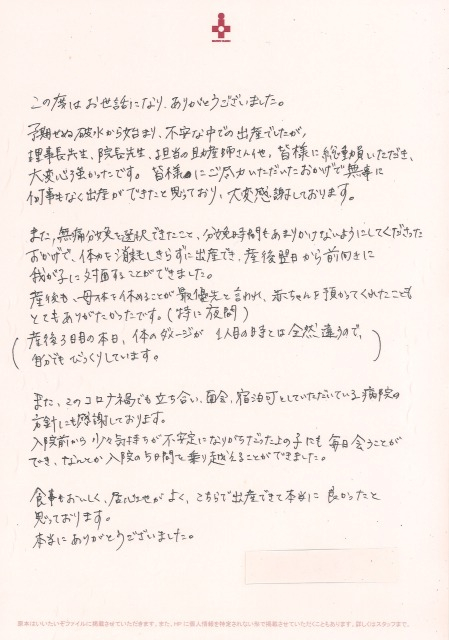 この度はお世話になり、ありがとうございました。
予期せぬ破水から始まり、不安な中での出産でしたが、
理事長先生、院長先生、担当の助産師さん他、皆様に総動員いただき、
大変心強かったです。皆様にご尽力いただいたおかげで無事に
何事もなく出産ができたと思っており、大変感謝しております。
また、無痛分娩を選択できたこと、分娩時間もあまりかけないようにしてくださった
おかげで、体力を消耗しきらずに出産でき、産後翌日から前向きに
我が子に対面することができました。
産後も、母体を休めることが最優先と言われ、赤ちゃんを預かってくれたことも
とてもありがたかったです。(特に夜間)
(産後3日目の本日、体のダメージが1人目の時とは全然違うので、
自分でもびっくりしています。)
また、このコロナ禍でも立ち合い、面会、宿泊可としていただいている病院の
方針にも感謝しております。
入院前から少々気持ちが不安定になりがちだった上の子にも毎日会うことが
でき、なんとか入院の5日間を乗り越えることができました。
食事もおいしく、居心地がよく、こちらで出産できて本当に良かったと
思っております。
本当にありがとうございました。
原本はいいたいぞファイルに掲載させていただきます。また、HPに個人情報を特定されない形で掲載させていただくこともあります。詳しくはスタッフまで。